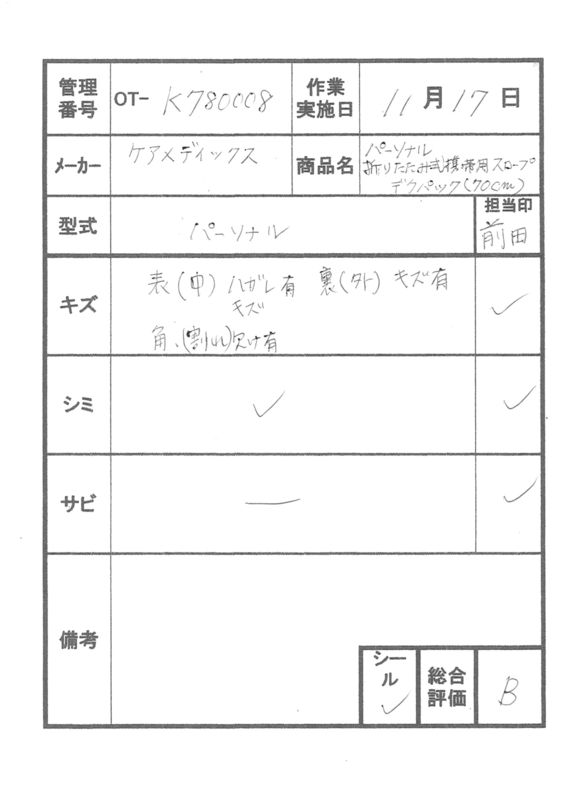 管理番号 OT- K780008 作業実施日 11月17日
メーカー ケアメディックス 商品名 パーソナル
折りたたみ式携帯用スロープ
デクパック(70cm)
型式 パーソナル 担当印 前田
キズ 表(中) ハガレ有 裏(外) キズ有 ✓
キズ
角、(割れ)欠け有
シミ ✓ ✓
サビ — ✓
備考
シール ✓ 総合評価 B